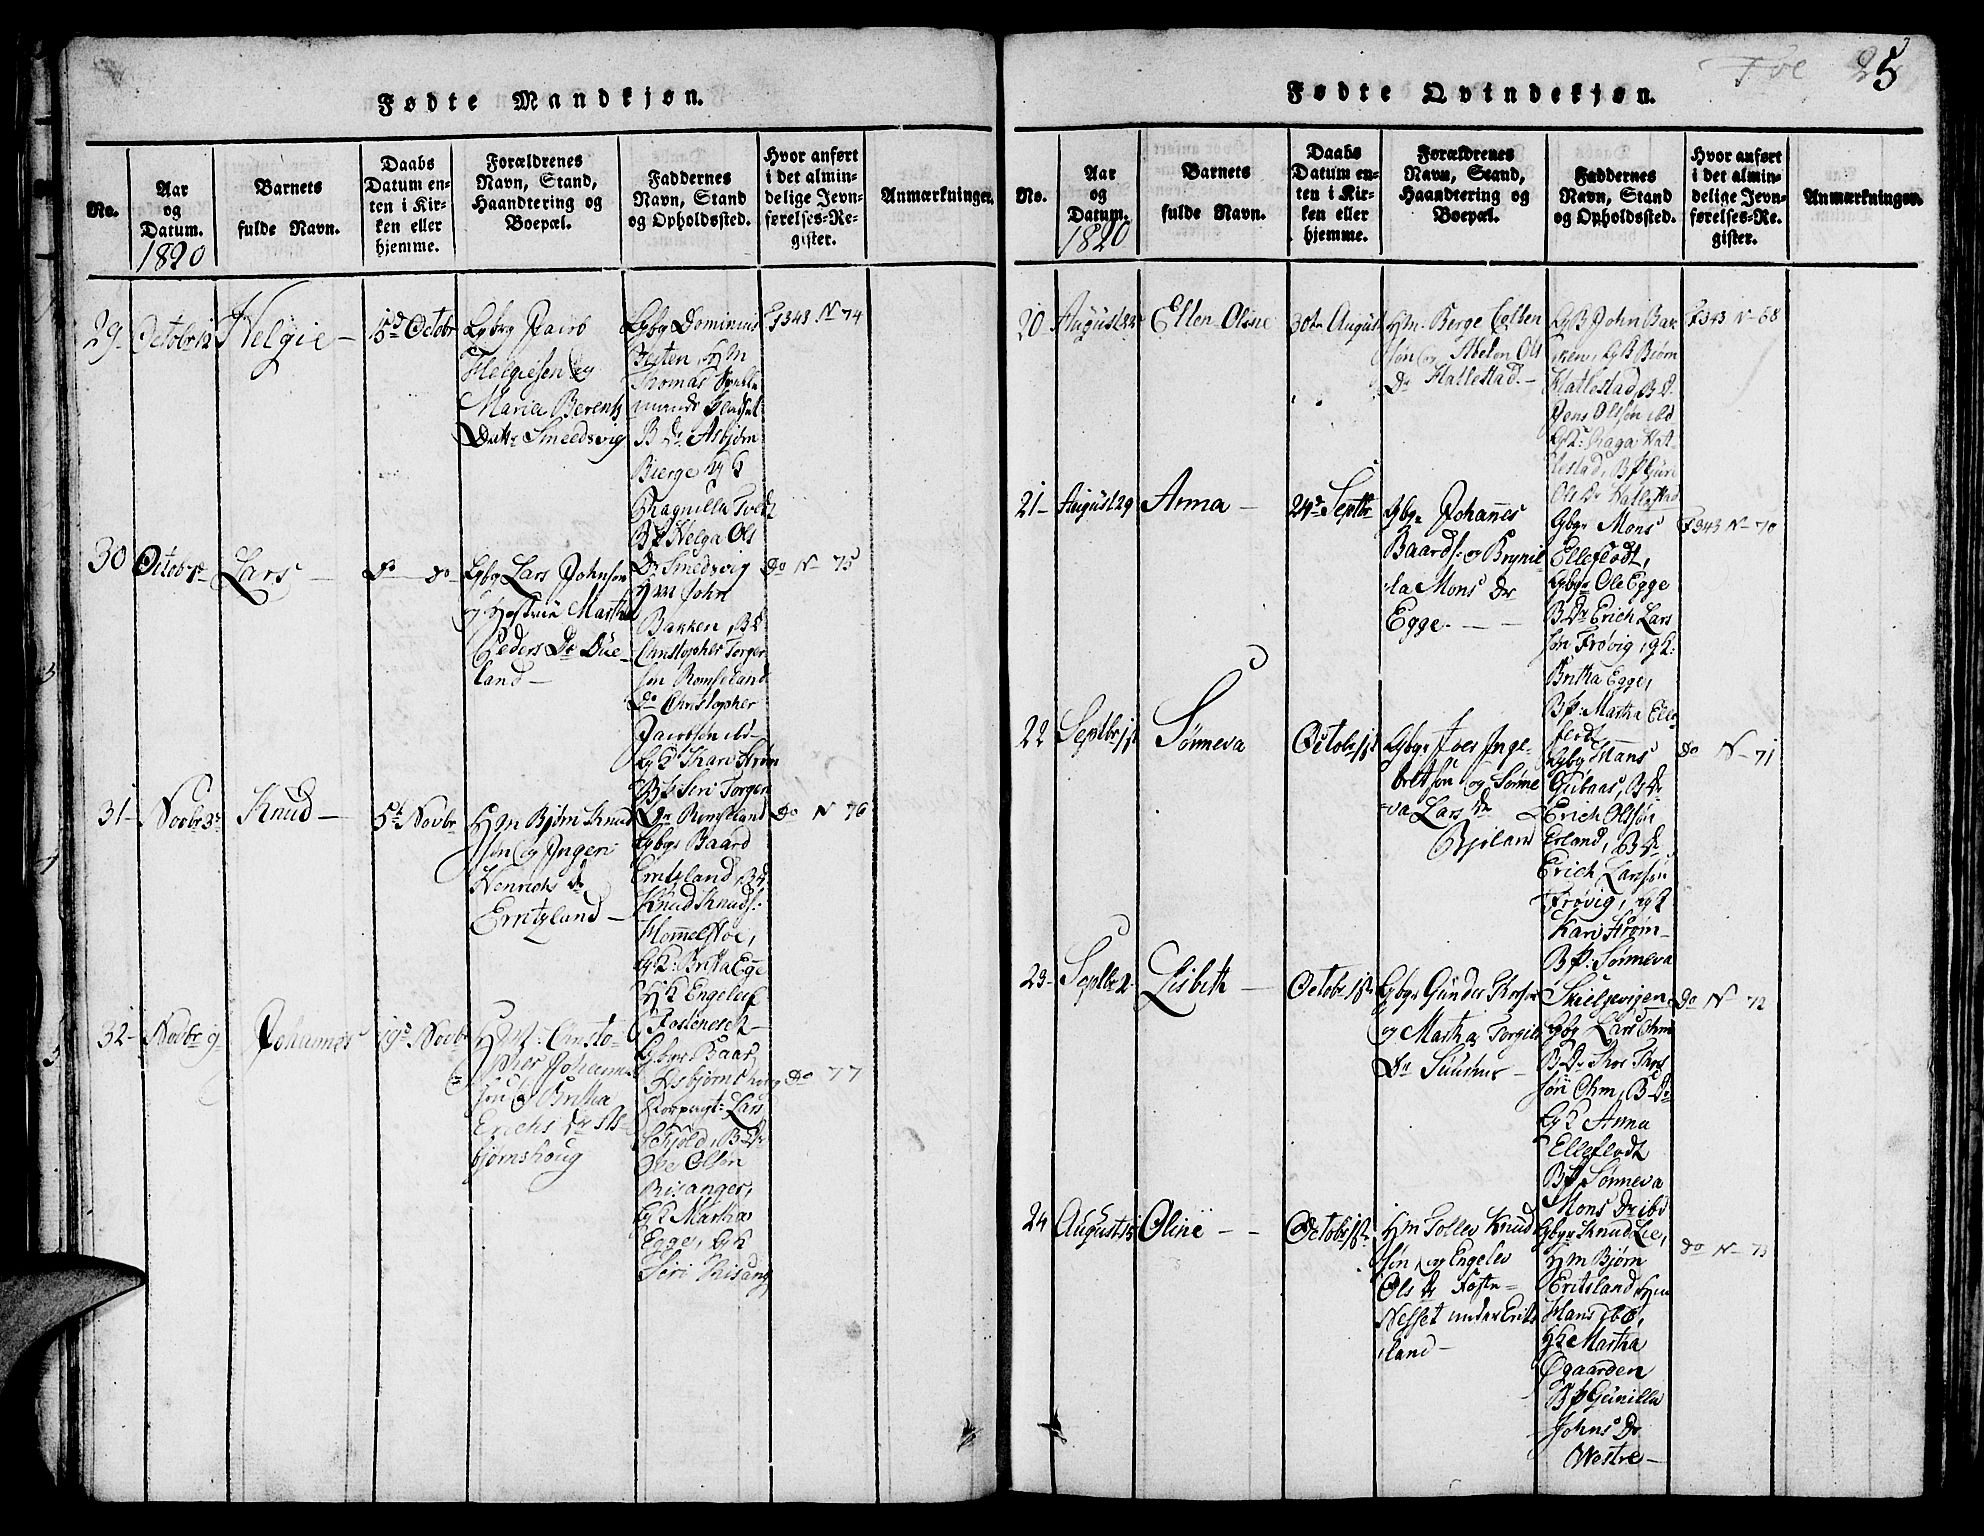 Fødte Mandkjøn.
No.
Aar
og
Datum.
1820
Barnets
fulde Navn.
Daabs
Datum en-
ten i Kir-
ken eller
hjemme.
Forældrenes
Navn, Stand,
Haandtering og
Boepæl.
Faddernes
Navn, Stand
og Opholdssted.
Hvor anført
i det almin-
delige Jevn-
førelses-Re-
gister.
Anmærkninger.
29
Helgie
5d Octobr
Gbgr Jacob
Helgiesen og
Maria Berents
Dattr Smeedsvig
Thomas
Asbjørn
Bierge
B P Helga Ols
Dr Smedsvig
F343 N 74
30
Lars
Do Do
Gbgr Lars Johnsen
og Hustrue Martha
Peders Dr Due-
land
Hm John
Bakken, B.D.
Christopher Torger
søn Romseland
Do Christopher
Jacobsen ibd
Kari Strøm
Bp Seri Torger
Dr Romseland
Do N 75
31
Novbr 3
Knud
5t Novbr
Hm Bjørn Knud
søn og Inger
Henrichs Dr
Eritzland
Gbgr Baard
Eritzland, B.D.
Knud Knuds:
Hommelstoe,
Britta Egge
Engelef
Fostenesét
Do N 76
32
Novbr 9
Johannes
19d Novbr
Hm: Christo-
pher Johannes
søn & Britha
Erichs Dr As-
bjørnshoug
Gbgr Baar
Asbjørnshoug
Lars
Schjold, B Dr
Ole Olsøn
Risanger,
Gk Martha
Egge, Gk
Seri Risang
Do 77
Fødte Qvindekjøn.
25
No.
Aar
og
Datum.
1820
Barnets
fulde Navn.
Daabs
Datum en-
ten i Kir-
ken eller
hjemme.
Forældrenes
Navn, Stand,
Haandtering og
Boepæl.
Faddernes
Navn, Stand
og Opholdssted.
Hvor anført
i det almin-
delige Jevn-
førelses-Re-
gister.
Anmærkninger.
20
Ellen Oline
30te August
Hm. Berge
søn og Abelon Ols
Dr Hatlestad
GB John Bak
ken, GB Bjørn
Hatlestad, B.D.
Jens Olsøn ibd
Raga Hat-
lestad, Bp Guri
Ols Dr Hatlestad
F343 N 68
21
August 29
Anna
24d Septbr
Gbgr Johannes
Baards: og Brynil
la Mons Dr
Egge
Gbgr Mons
Elleflodt,
Gbgr Ole Egge
B Dr Erich Lars
søn Frøvig, gk:
Britha Egge,
Bp: Martha Elle
flodt
F343 N 70
22
Septbr 1st
Sønneva
Octobr 1st
Gbgr Iver Inge-
bretsøn og Sønne
va Lars Dr
Bjeland
Gbgr Mans
Gutaas, B. Dr
Erich Olssøn
Erland, B Dr
Erich Larssøn
Frøvig, gk
Kari Strøm
Bp: Sønneva
Skieljevigen
Do N 71
23
Septbr 2
Lisbeth
Octobr 1st
Gbgr Gunder Thors
og Martha Torgils
Dr Sundnes
Gbgr Lars Ohm
B Dr Thor Thors
søn Ohm, B Dr
Gk Anna
Elleflodt
Bp Sønneva
Mons Dr ibd
Do N 72
24
August 15
Oline
Octobr 1st
Hm Tollev Knud
søn og Engelev
Ols Dr Foste-
Nesset under Erits
land
Gbgr Knud Lie,
Hm Bjørn
Eritsland Hm
Hans ibd,
Hk Martha
Øgaarden
Bp Gunilla
Johns Dr
Westre
Do N 73